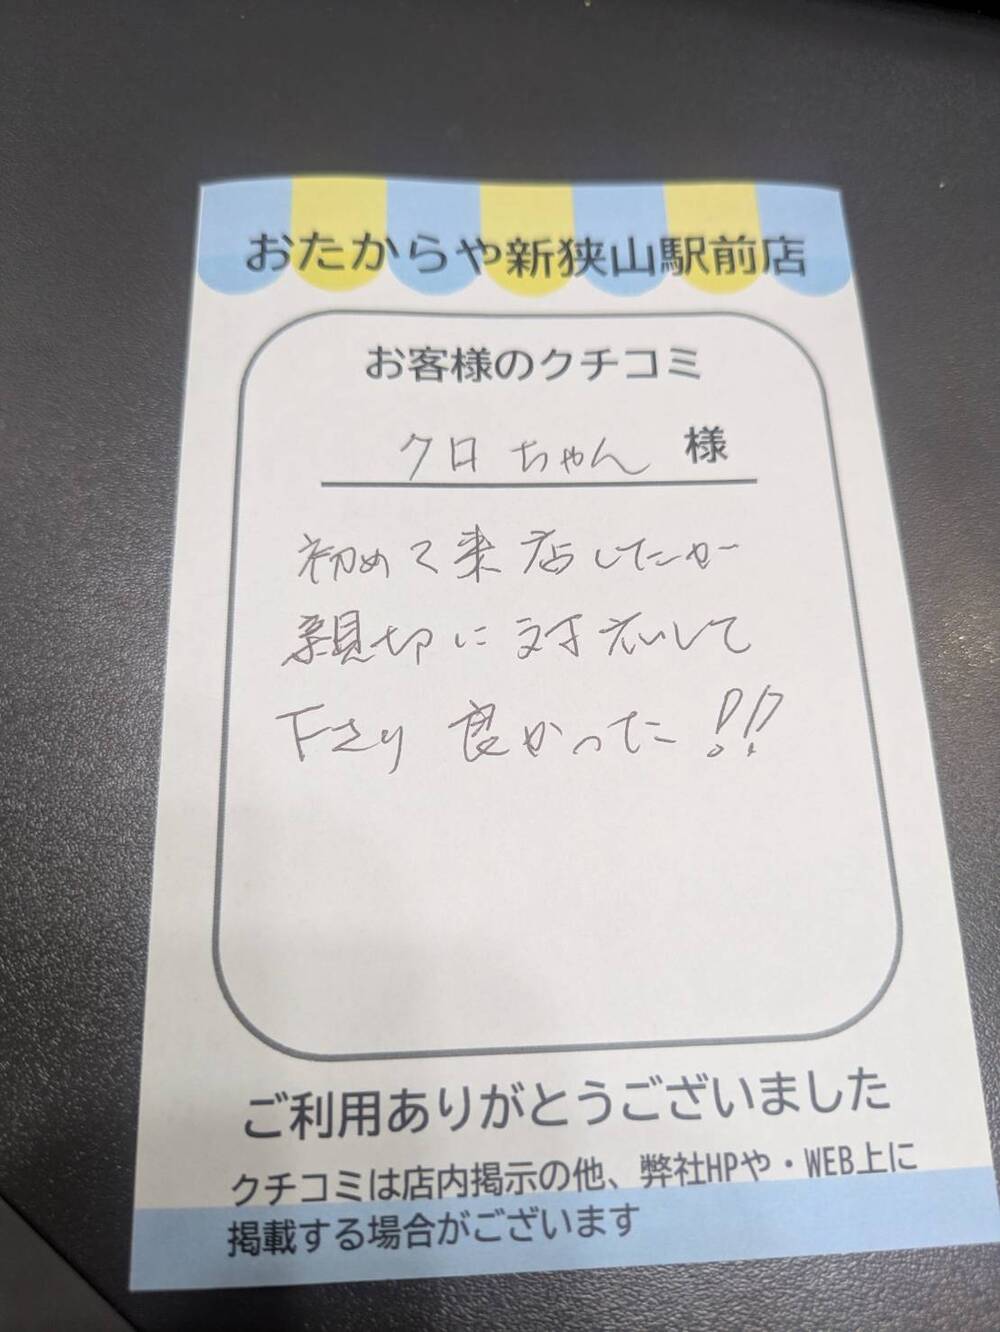 おたからや新狭山駅前店
お客様のクチコミ
クロちゃん 様
初めて来店したが
親切に対応して
下さり 良かった!!
ご利用ありがとうございました
クチコミは店内掲示の他、弊社HPや・WEB上に
掲載する場合がございます